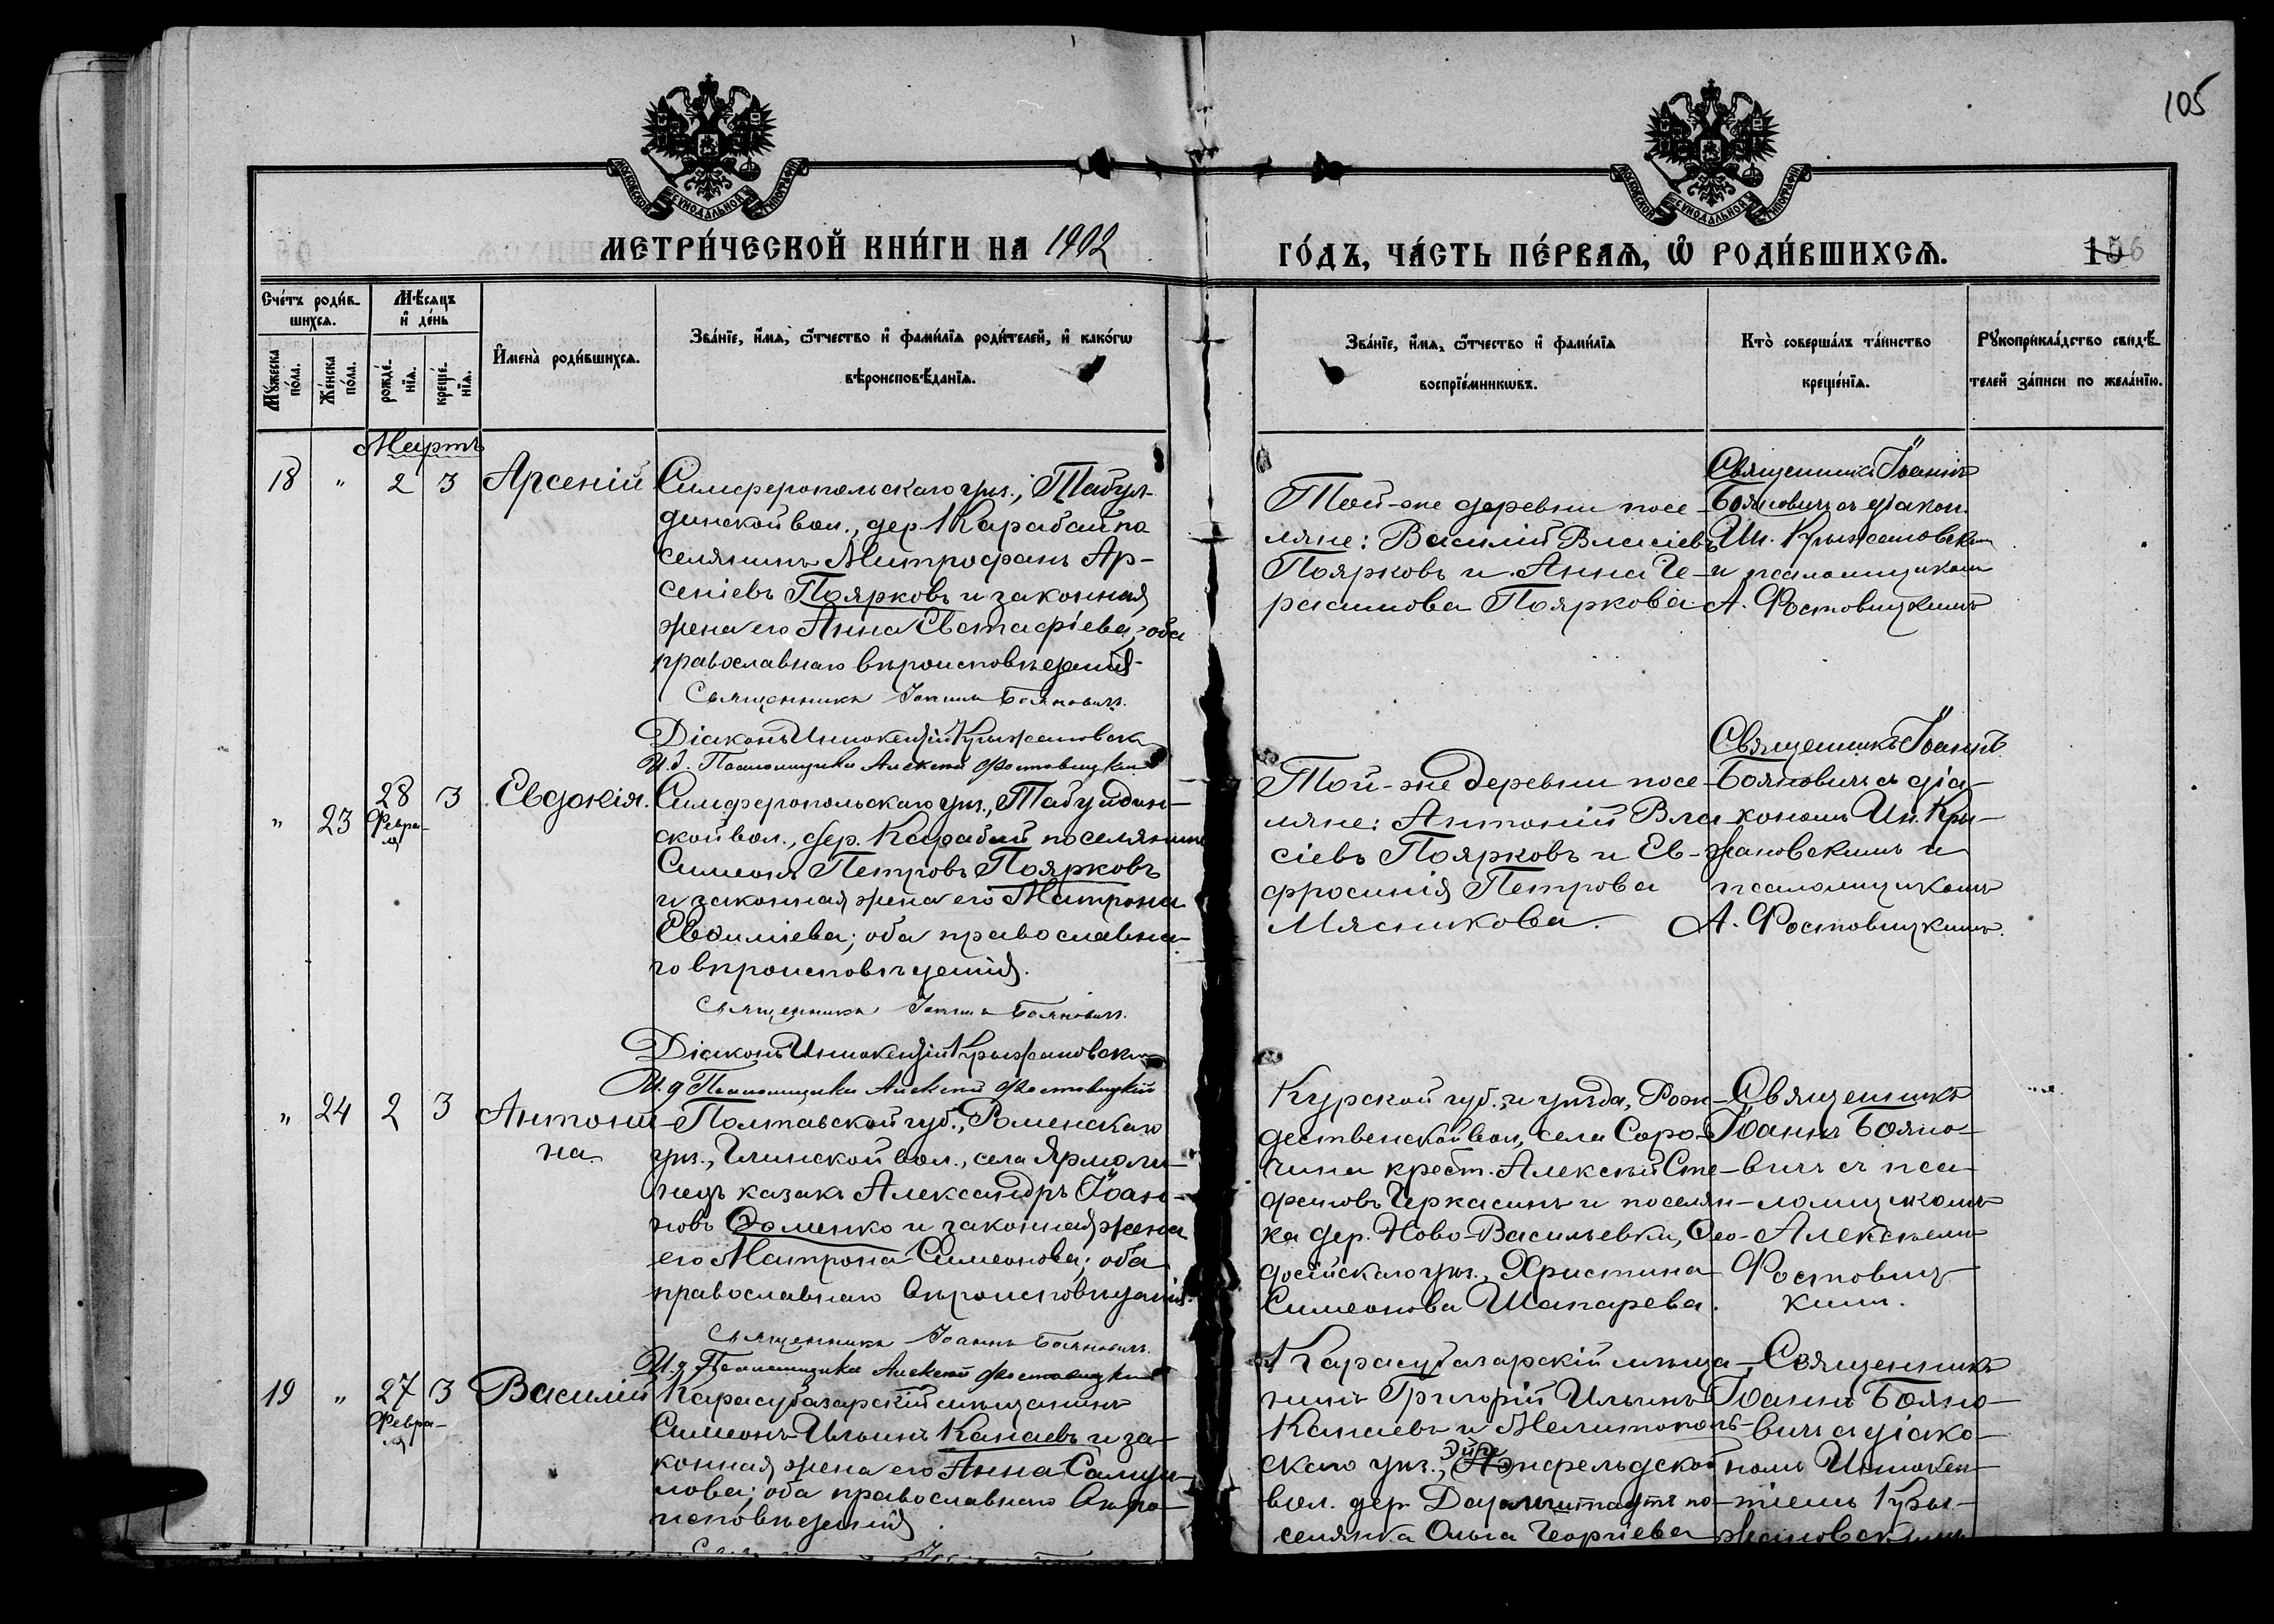 105
МОСКОВСКОЙ СѴНОДАЛЬНОЙ ТИПОГРАФІИ
МОСКОВСКОЙ СѴНОДАЛЬНОЙ ТИПОГРАФІИ
МЕТРИ́ЧЕСКОЙ КНИ́ГИ НА 1902
ГО́ДЪ, ЧА́СТЬ ПЕ́РВАѦ, Ѡ РОДИ́ВШИХСѦ.
156
Сче́тъ роди́в-
шихсѧ.
Мѣ́сяцъ
и де́нь
Мꙋ́жеска
по́ла.
Же́нска
по́ла.
рожде́-
нїѧ.
креще́-
нїѧ.
Имена̀ роди́вшихсѧ.
Зва́нїе, и́мѧ, ѻ́тчество и фами́лїѧ роди́телей, и како́гѡ
вѣроисповѣ́данїѧ.
Зва́нїе, и́мѧ, ѻ́тчество и фами́лїѧ
воспрїе́мникѡвъ.
Кто̀ соверша́лъ та́инство
креще́нїѧ.
Рꙋкоприкла́дство свидѣ́-
телей за́писи по жела́нїю.
Мартъ
18 " 2 3 Арсеній
Симферопольскаго уѣз., Табул-
динской вол., дер. Карабай по
селянинъ Митрофанъ Ар-
сеніевъ Поярковъ и законная
жена его Анна Евстафіева; оба
православнаго вѣроисповѣданія.
Священникъ Іоаннъ Бояновичъ.
Діаконъ Иннокентій Крыжановскій
И. д. Псаломщика Алексѣй Фостовицкій
Той-же деревни посе-
ляне: Василій Власіевъ
Поярковъ и Анна Ге-
расимова Пояркова.
Священникъ Іоаннъ
Бояновичъ съ діакон.
Ин. Крыжановским
и псаломщиком
А. Фостовицкимъ
" 23 28 Февра-
ля 3 Евдокія.
Симферопольскаго уѣз., Табулдин-
ской вол., дер. Карабай поселянинъ
Симеонъ Петровъ Поярковъ
и законная жена его Матрона
Евѳиміева; оба православна-
го вѣроисповѣданія.
Священникъ Іоаннъ Бояновичъ.
Діаконъ Иннокентій Крыжановскій
И. д Псаломщика Алексѣй Фостовицкій
Той-же деревни посе-
ляне: Антоній Вла
сіевъ Поярковъ и Ев-
фросинія Петрова
Мясникова.
Священникъ Іоаннъ
Бояновичъ съ діа-
кономъ Ин. Кры-
жановскимъ и
псаломщикомъ
А. Фостовицкимъ.
" 24 2 3 Антони-
на
Полтавской губ., Роменскаго
уѣз., Глинской вол., села Ярмоли-
нецъ казакъ Александръ Іоан-
новъ Ѳоменко и законная жена
его Матрона Симеонова; оба
православнаго вѣроисповѣданія.
Священникъ Іоаннъ Бояновичъ.
И. д. Псаломщика Алексѣй Фостовицкій
Курской губ., и уѣзда, Рож-
дественской вол., села Соро-
чина крест. Алексѣй Сте-
фановъ Черкасинъ и поселян-
ка дер. Ново-Васильевки, Ѳео-
досійскаго уѣз., Христина
Симеонова Шапарева.
Священникъ
Іоаннъ Бояно-
вичъ съ пса-
ломщикомъ
Алексѣемъ
Фостовиц-
ким.
19 " 27 Февра-
ля 3 Василій
Карасубазарскій мѣщанинъ
Симеонъ Ильинъ Канаевъ и за-
конная жена его Анна Самуи-
лова; оба православнаго вѣро-
исповѣданія
Карасубазарскій мѣща-
нинъ Григорій Ильинъ
Канаевъ и Мелитополь-
скаго уѣз.,
вол. дер. Дармштадтъ по-
селянка Ольга Георгіева
Священникъ
Іоаннъ Бояно-
вичъ съ діако-
номъ Иннокен-
тіемъ Кры-
жановскимъ